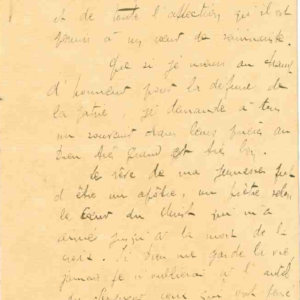 et de toute l'affection qu'il est
permis à un cœur de
Que si je meurs au champ
d'honneur pour la défense de
la patrie, je demande à tous
un souvenir dans leurs prières au
Dieu très grand et très bon.
Le rêve de ma jeunesse fut
d'être un apôtre, un prêtre selon
le Cœur du Christ qui m'a
aimé jusqu'à la mort de la
croix. Si Dieu me garde la vie,
jamais je n'oublierai à l'autel
du ceux qui ont